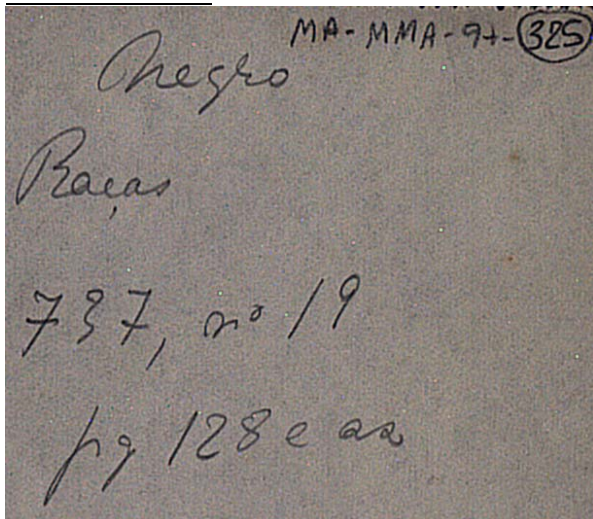 MA-MMA-97-325
Negro
Raças
737, nº 19
pg 128 e ss